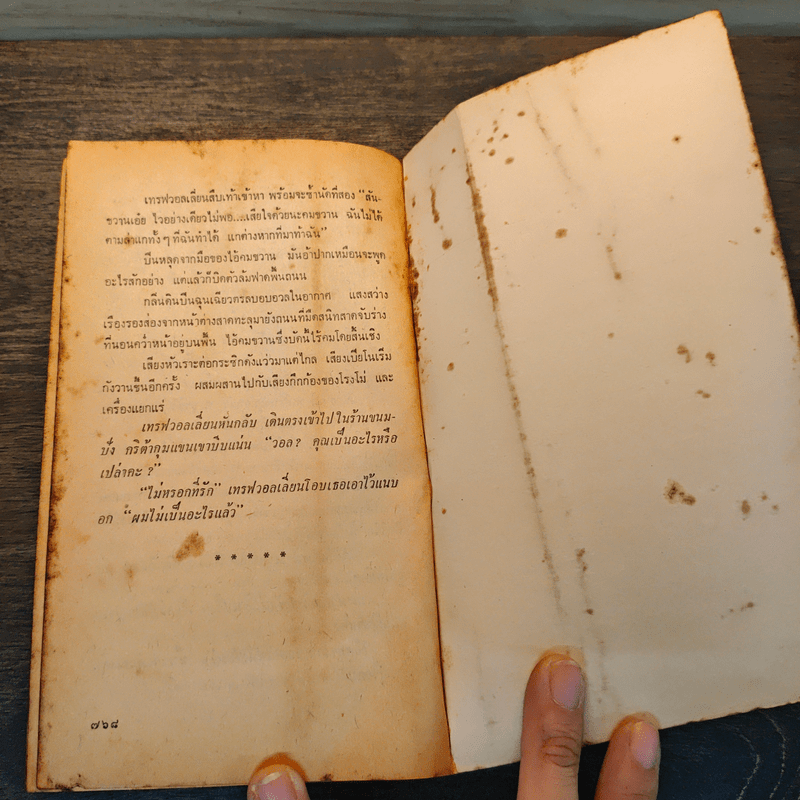 เทรฟวอลเลี่ยนสืบเท้าเข้าหา พร้อมจะซ้ำนัดที่สอง “สัน-
ขวานเอ๋ย ไวอย่างเดียวไม่พอ....เสียใจด้วยนะคมขวาน ฉันไม่ได้
ตามล่าแกทั้ง ๆ ที่ฉันทำได้ แกต่างหากที่มาท้าฉัน”
ปืนหลุดจากมือของไอ้คมขวาน มันอ้าปากเหมือนจะพูด
อะไรสักอย่าง แต่แล้วก็บิดตัวล้มฟาดพื้นถนน
กลิ่นดินปืนฉุนเฉียวตรลบอบอวลในอากาศ แสงสว่าง
เรืองรองส่องจากหน้าต่างสาดทะลุมายังถนนที่มืดสนิทสาดจับร่าง
ที่นอนคว่ำหน้าอยู่บนพื้น ไอ้คมขวานซึ่งบัดนี้ไร้คมโดยสิ้นเชิง
เสียงหัวเราะต่อกระซิกดังแว่วมาแต่ไกล เสียงเปียโนเริ่ม
กังวานขึ้นอีกครั้ง ผสมผสานไปกับเสียงกึกก้องของโรงโม่ และ
เครื่องแยกแร่
เทรฟวอลเลี่ยนหันกลับ เดินตรงเข้าไปในร้านขนม-
ปัง กริต้ากุมแขนเขาบีบแน่น “วอล ? คุณเป็นอะไรหรือ
เปล่าคะ ?”
“ไม่หรอกที่รัก” เทรฟวอลเลี่ยนโอบเธอเอาไว้แนบ
อก “ผมไม่เป็นอะไรแล้ว”
* * * * *
๗๖๘